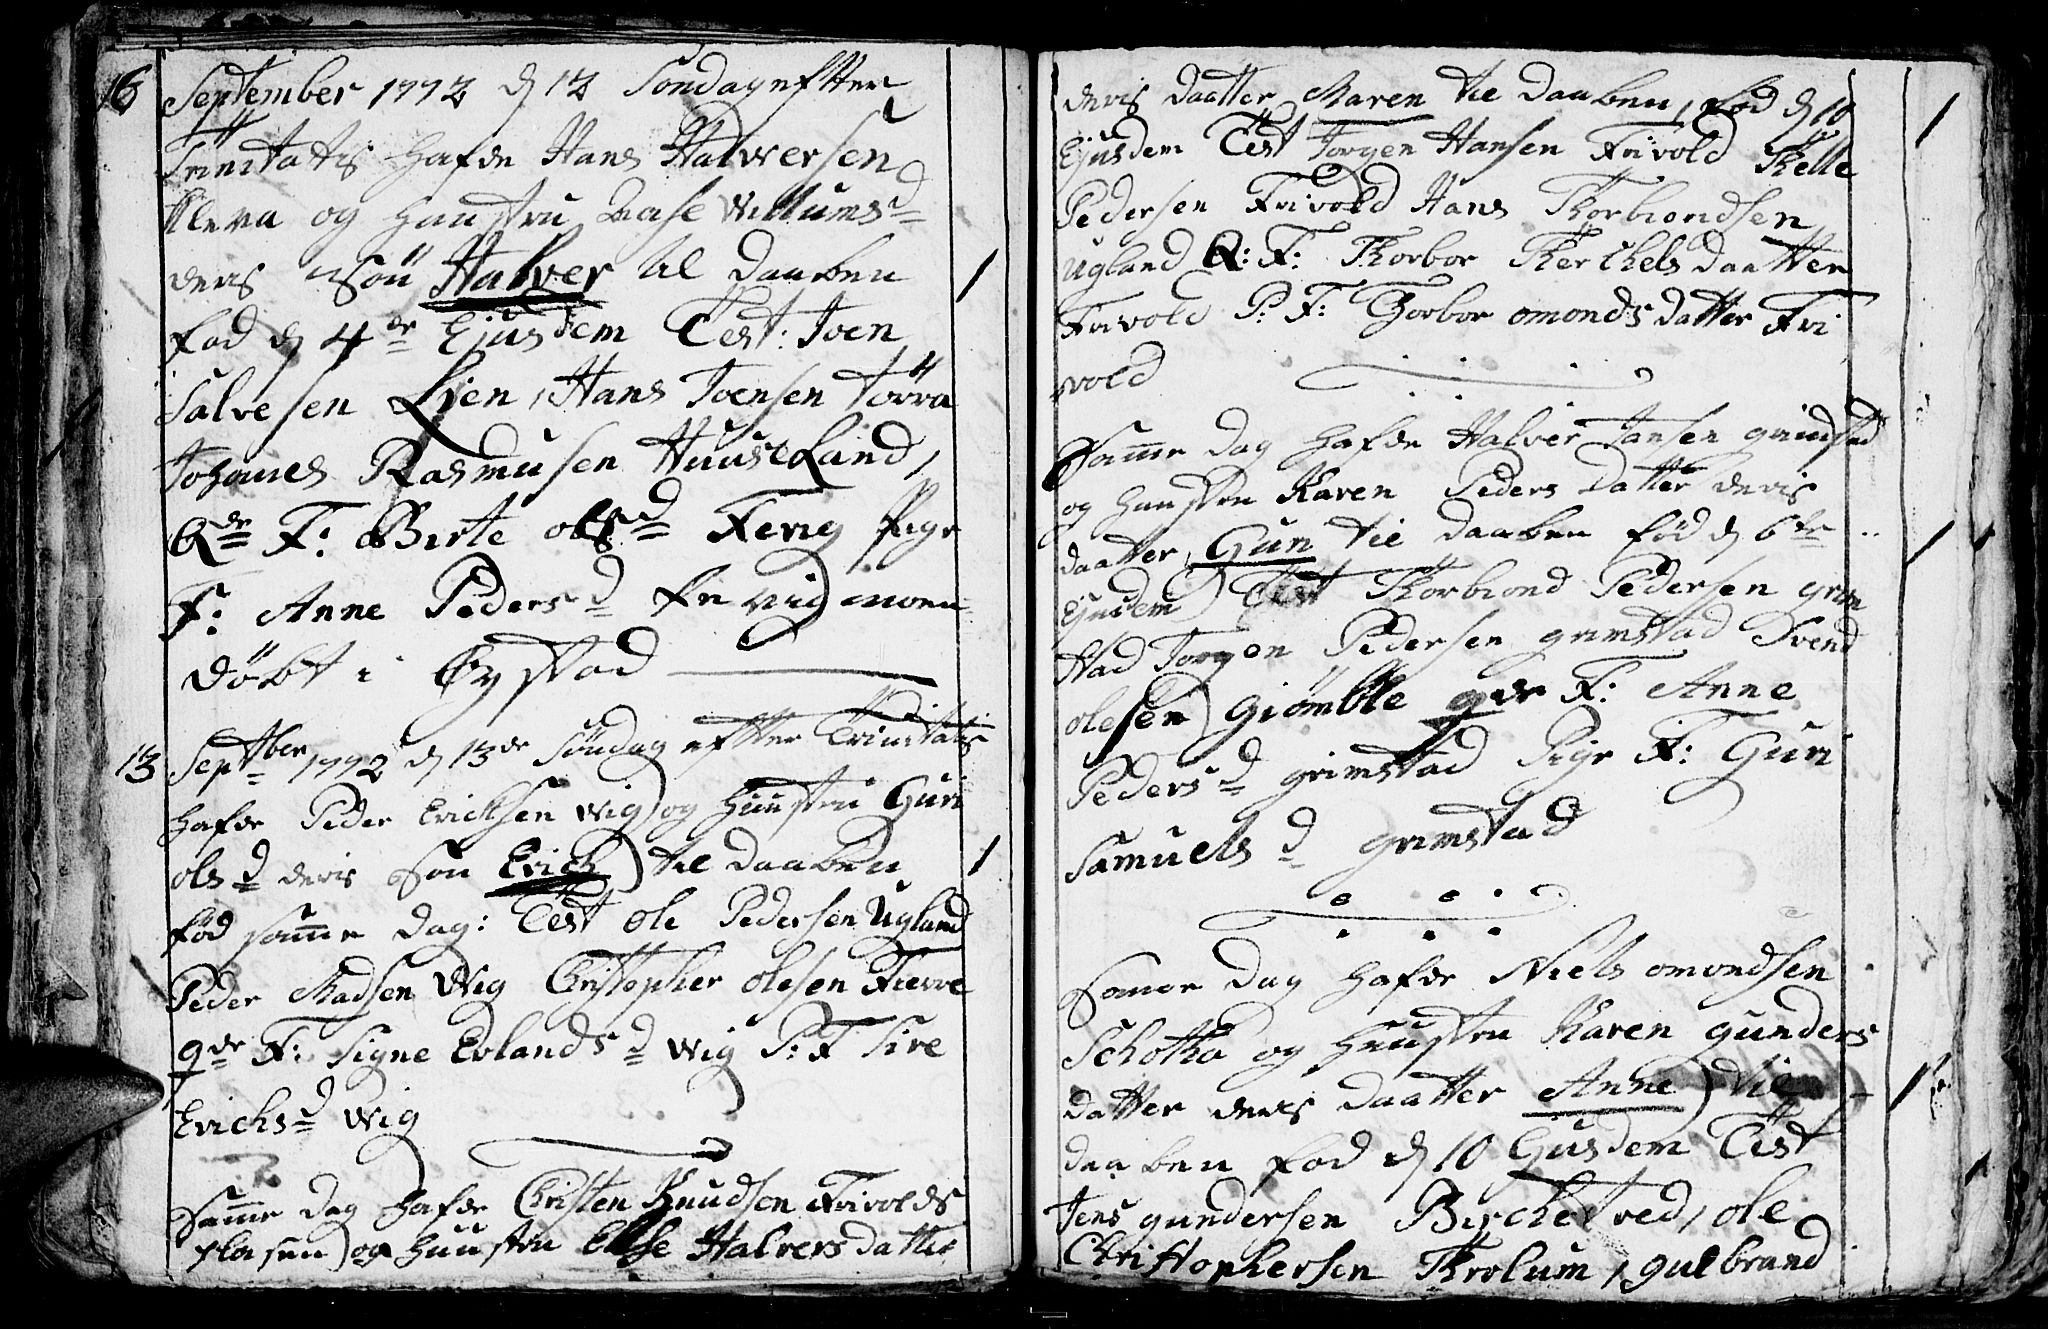 16 September 1772 d 12 Søndag efter
Trinitatis hafde Hans Halwersen
Kleva og hustru Aase Willumsd
deris Søn Halver til daaben
fød d 4de Ejusdem Test: Joen
Salvesen Lien, Hans Joensen Törra
Johanes Rasmusen HuuseLand,
Qde F: Birte olsd Fevig Pige
F: Anne Pedersd Fevig
döbt i Øystad
13 Septber 1772 d 13de Søndag efter Trinitatis
hafde Peder Ericksen Wig og Hustru Guri
olsd deris Søn Erich til daaben
fød samme dag: Test ole Pedersen Ugland
Peder Madsen Wig Christopher olesen Fierre
qde F: Signe Evlandsd Wig P: F Sire
Erichsd Wig
Samme dag hafde Christen Knudsen Frivolds
Plasen og hustru Else Halvers datter
deris daatter Maren til daaben, fød d 10
Ejusdem Test Jorgen Hansen Frivold Kelle
Pedersen Frivold Hans Thorbiondsen
Ugland Q: F: Thorbor Kerchels daatter
Frivold P: F: Thorbor omonds datter Fri
vold
Samme dag hafde Halver Jansen grimstad
og hustru Karen Peders datter deris
daatter, Gun til daaben fød d 6te
Ejusdem Test Thorbiond Pedersen grim
stad Jorgen Pedersen grimstad Svend
olesen Giömble qde F: Anne
Pedersd grimstad Pige F: Guri
Samuelsd grimstad
Samme dag hafde Niels omondsen
Schotha og hustru Karen gunders
datter deris daatter Anne til
daaben fød d 10 Ejusdem Test
Jens gundersen Birchetved, ole
Christophersen Throlum, gulbrand